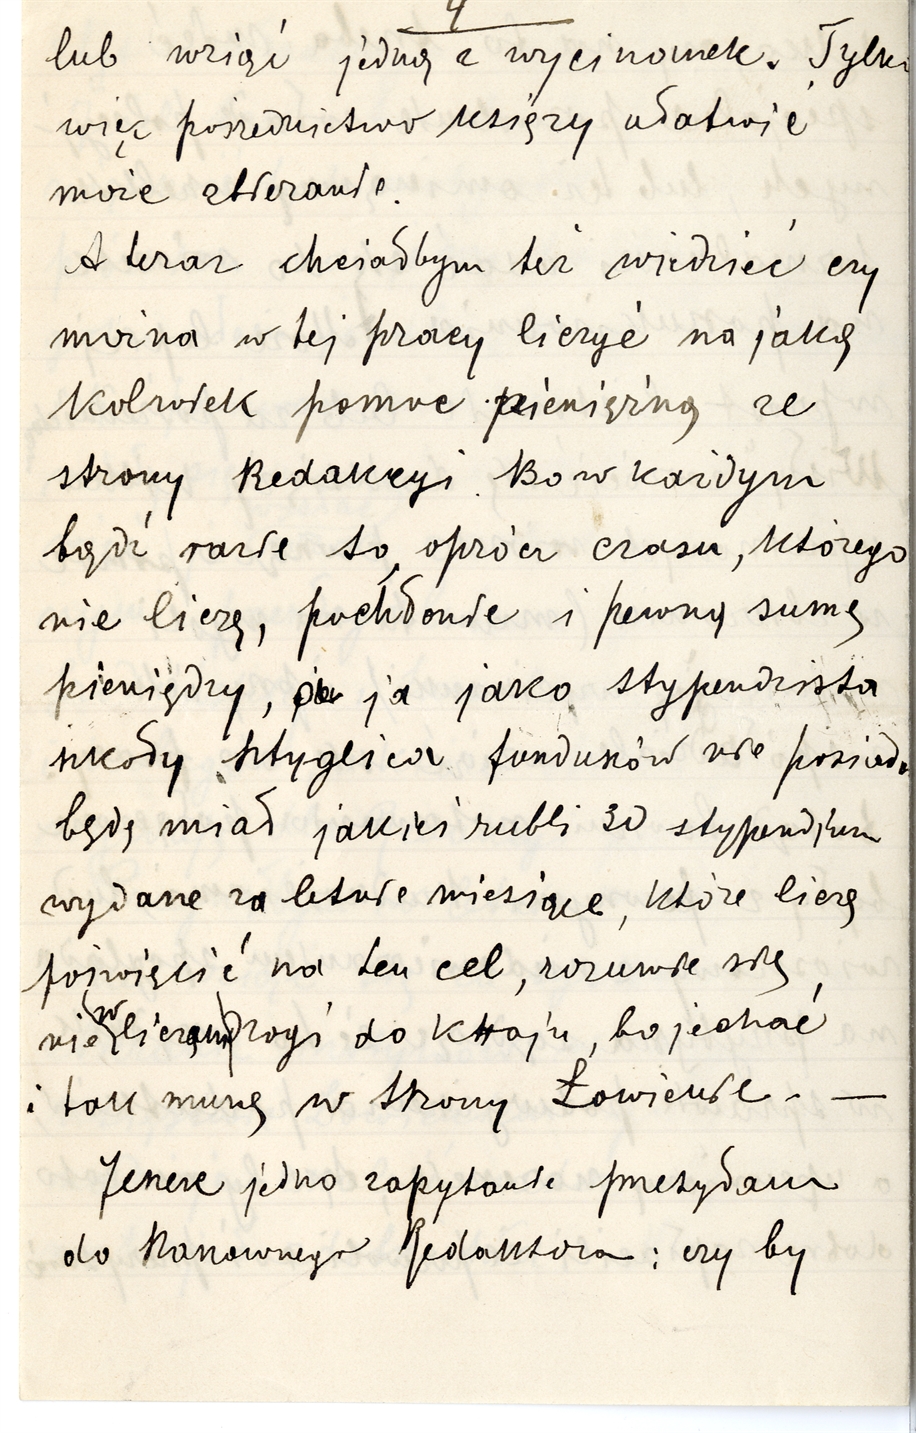 4
lub wziąć jedną z wycinanek. Tylko
więc pośrednictwo księży ułatwić
może zbieranie.
A teraz chciałbym też wiedzieć czy
można w tej pracy liczyć na jaką
kolwiek pomoc pieniężną ze
strony Redakcyi. Bo w każdym
bądź razie to, oprócz czasu, którego
nie liczę, pochłonie i pewną sumę
pieniędzy, ja jako stypendzista
szkoły Sztyglica funduszów nie posiada
będę miał jakieś rubli 30 stypendjum
wydane za letnie miesiące, które liczę
poświęcić na ten cel, rozumie się
nie w liczam drogi do kraju, bo jechać
i tak muszę w strony Łowickie. —
Jeszcze jedno zapytanie przesyłam
do Szanownego Redaktora: czy by